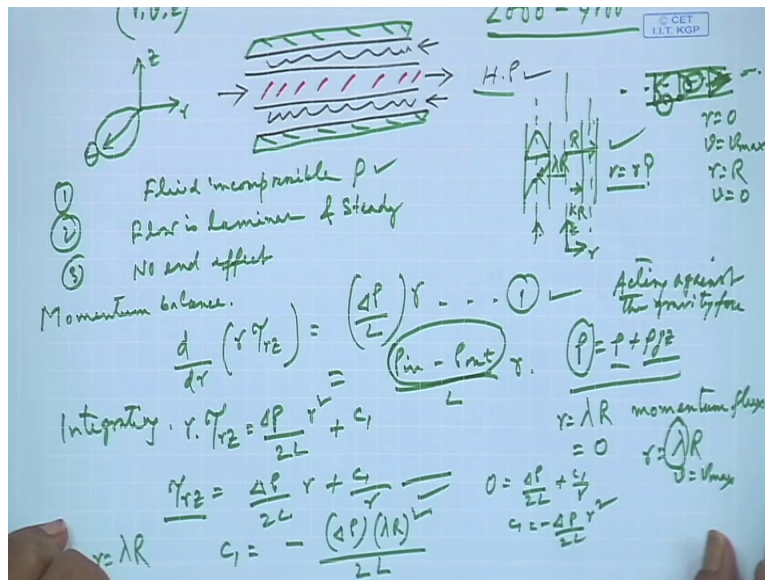 (r, θ, z)
2000 - 4100
© CET
I.I.T. KGP
z
r
θ
H.P ✓
R
λR
r = r
KR
z
r
r=0
v=vmax
r=R
v=0
① Fluid incompressible ρ ✓
② Flow is Laminar & Steady
③ No end effect
Momentum balance.
d/dr (r τrz) = (ΔP/L) r - - - ① ✓
Acting against
the gravity force
= (Pin - Pout)/L r.
P = p + ρgz
Integrating. r. τrz = ΔP/2L r² + C₁
r = λR momentum flux
= 0
r = λR
v = vmax
τrz = ΔP/2L r + C₁/r
0 = ΔP/2L + C₁/r
C₁ = - ΔP/2L r²
r = λR C₁ = - (ΔP)(λR)²/2L